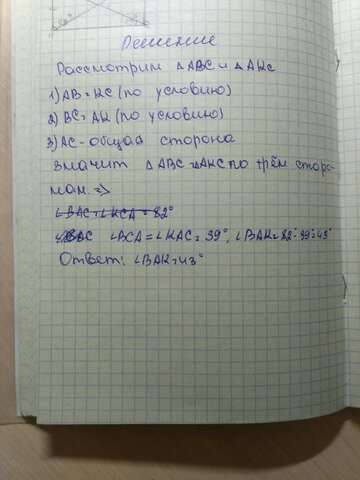 Решение
Рассмотрим △ABC и △AKC
1) AB = KC (по условию)
2) BC = AK (по условию)
3) AC - общая сторона
Значит △ABC = △AKC по трём сторо-
нам. ⇒
∠BAC = ∠KCA = 82°
∠BCA = ∠KAC = 39°, ∠BAK = 82° - 39° = 43°
Ответ: ∠BAK = 43°